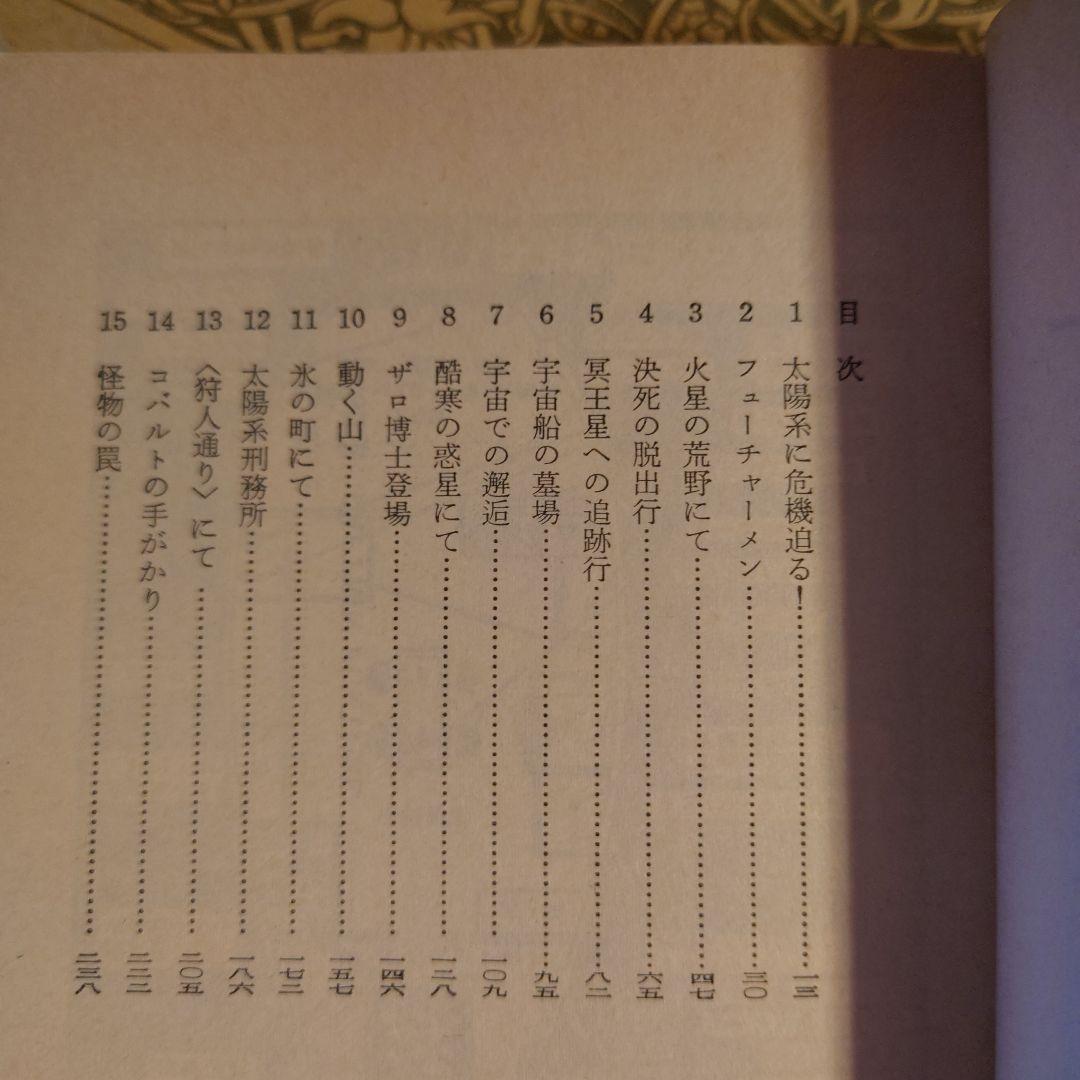 目次
1 太陽系に危機迫る!……一三
2 フューチャーメン……三〇
3 火星の荒野にて……四七
4 決死の脱出行……六五
5 冥王星への追跡行……八二
6 宇宙船の墓場……九五
7 宇宙での邂逅……一〇九
8 酷寒の惑星にて……一二八
9 ザロ博士登場……一四六
10 動く山……一五七
11 氷の町にて……一七二
12 太陽系刑務所……一八六
13 〈狩人通り〉にて……二〇五
14 コバルトの手がかり……二二二
15 怪物の罠……二三八